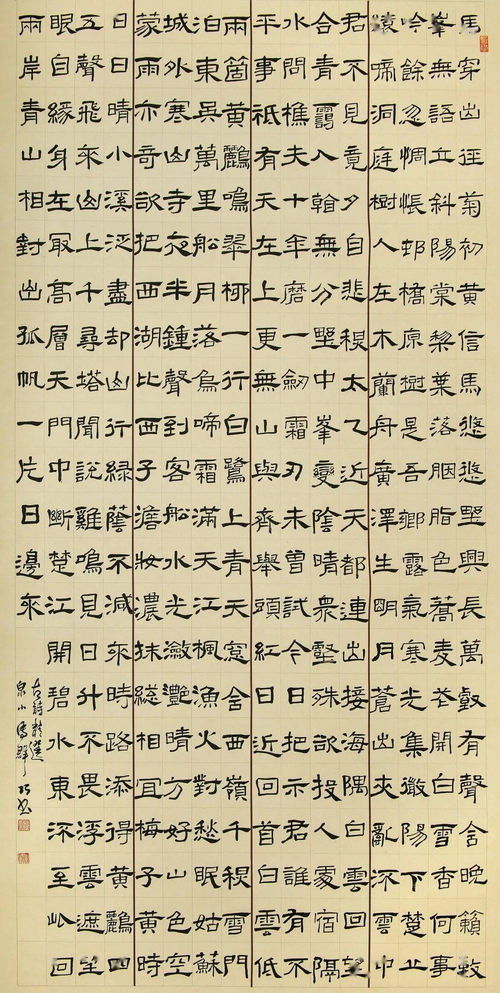 馬穿山徑菊初黃信馬悠悠野興長萬壑有聲含晚籟數
峯無語立斜陽棠梨葉落胭脂色蕎麥花開白雪香何事
吟餘忽惆悵邨橋原樹是吾鄉露氣寒光集微陽下楚丘
猿啼洞庭樹人在木蘭舟廣澤生明月蒼山夾亂流雲中
君不見竟夕自悲秋太乙近天都連山接海隅白雲回望
合青靄入看無分野中峯變陰晴眾壑殊欲投人處宿隔
水問樵夫十年磨一劍霜刃未曾試今日把示君誰有不
平事祇有天在上更無山與齊舉頭紅日近回首白雲低
兩箇黃鸝鳴翠柳一行白鷺上青天窗含西嶺千秋雪門
泊東吳萬里船月落烏啼霜滿天江楓漁火對愁眠姑蘇
城外寒山寺夜半鍾聲到客船水光瀲灩晴方好山色空
蒙雨亦奇欲把西湖比西子澹妝濃抹總相宜梅子黃時
日日晴小溪泛盡却山行綠蔭不減來時路添得黃鸝四
五聲飛來山上千尋塔聞說雞鳴見日升不畏浮雲遮望
眼自緣身在最高層天門中斷楚江開碧水東流至此回
兩岸青山相對出孤帆一片日邊來
古詩精選